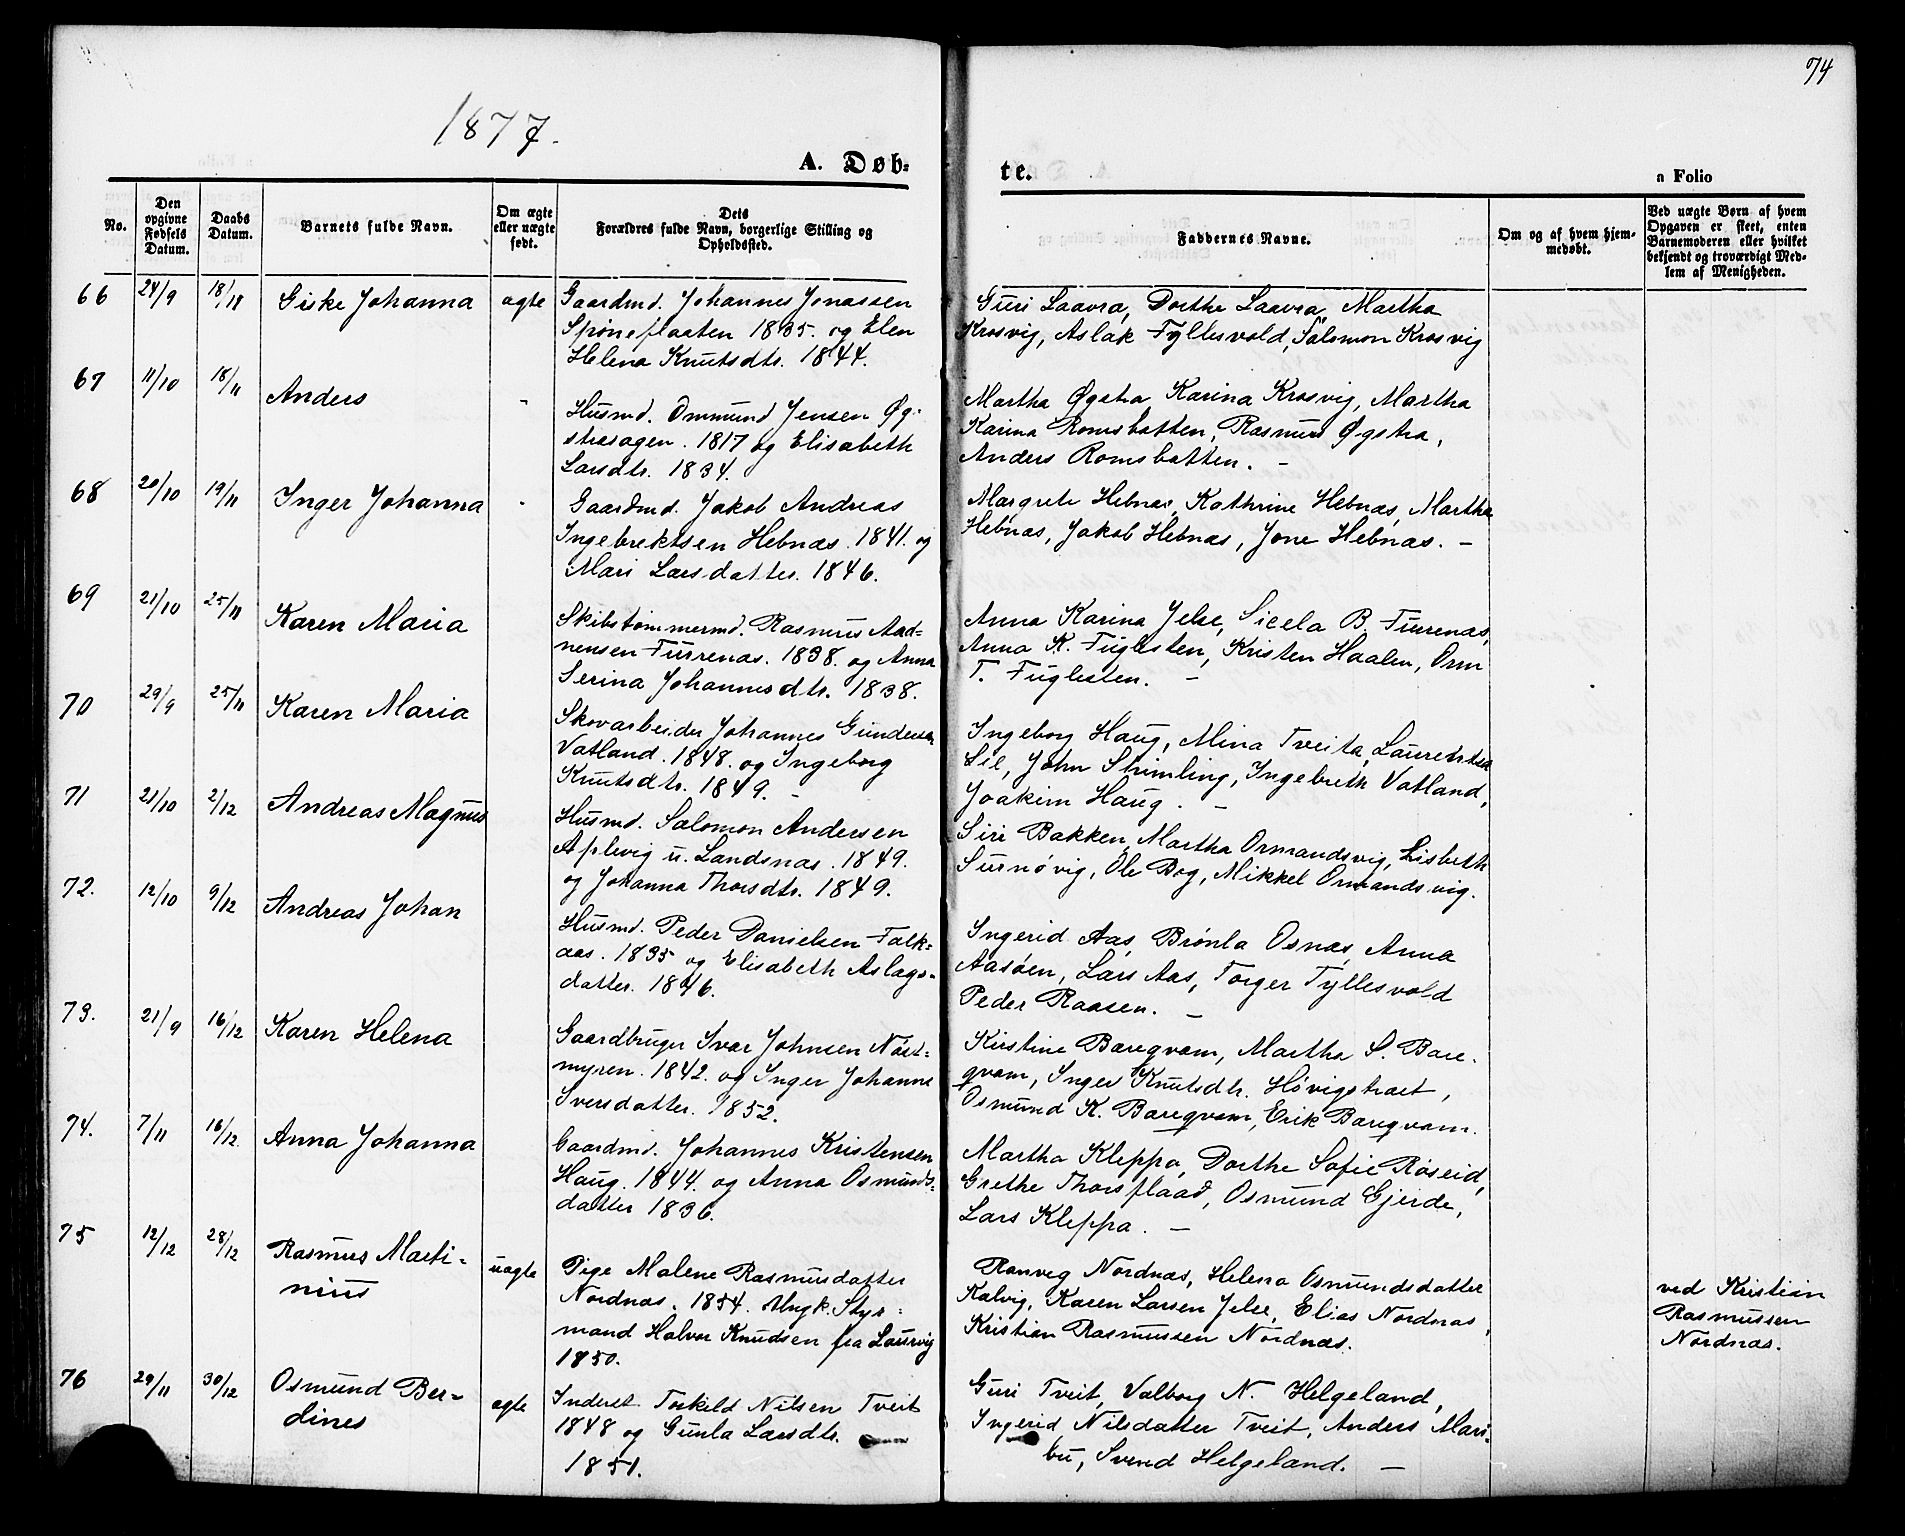 74
1877.
A. Døb-
te.
a Folio
No.
Den opgivne Fødsels Datum.
Daabs Datum.
Barnets fulde Navn.
Om ægte eller uægte født.
Dets Forældres fulde Navn, borgerlige Stilling og Opholdssted.
Faddernes Navne.
Om og af hvem hjemmedøbt.
Ved uægte Børn af hvem Opgaven er skeet, enten Barnemoderen eller hvilket bekjendt og troværdigt Medlem af Menigheden.
66 24/9 18/11 Giske Johanna ægte
Gaardmd. Johannes Jonassen
Spøneflaaten 1835. og Elen
Helena Knutsdtr. 1844.
Guri Laavra, Dorthe Laavra, Martha
Krosvig, Aslak Tyllesvold, Salomon Krosvig
67 11/10 18/11 Anders -
Husmd. Ommund Jensen Øg-
strasagen. 1817 og Elisabeth
Larsdtr. 1834.
Martha Øgstra Karina Krosvig, Martha
Karina Romsbotten, Rasmus Øgstra,
Anders Romsbotten. -
68 20/10 19/11 Inger Johanna -
Gaardmd. Jakob Andreas
Ingebrektsen Hebnæs. 1841. og
Mari Larsdatter. 1846.
Margrete Hebnæs, Kathrine Hebnæs, Martha
Hebnæs, Jakob Hebnæs, Jone Hebnæs. -
69 21/10 25/11 Karen Maria
Skibstømmermd. Rasmus Aad-
nensen Furrenas. 1838. og Anna
Serina Johannesdtr. 1838.
Anna Karina Jelse, Sicela B. Furrenas,
Anna K. Fuglesten, Kristen Haalen, Orm
T. Fuglesten. -
70 29/9 25/11 Karen Maria
Skovarbeider Johannes Gundersen
Vatland. 1848. og Ingeborg
Knutsdtr. 1849. -
Ingeborg Haug, Mina Tveita, Laurentsa
Lie, John Skimling, Ingebreth Vatland,
Joakim Haug. -
71 21/10 2/12 Andreas Magnus
Husmd. Salomon Andersen
Aplevig u. Landsnæs. 1849.
og Johanna Thorsdtr. 1849.
Siri Bakken, Martha Ormandsvig, Lisbeth
Surnøvig, Ole Bog, Mikkel Ormandsvig.
72. 12/10 9/12 Andreas Johan
Husmd. Peder Danielsen Falk-
aas. 1835 og Elisabeth Aslags-
datter. 1846.
Ingerid Aas, Brønla Osnæs, Anna
Aasøen, Lars Aas, Torger Tyllesvold
Peder Raasen. -
73. 21/9 16/12 Karen Helena
Gaardbruger Ivar Johnsen Nøst-
myren. 1842. og Inger Johanne
Iversdatter. 1852.
Kirstine Baregvam, Martha S. Bare-
gvam, Inger Knutsdtr. Høvigstraet,
Osmund K. Baregvam, Erik Baregvam.
74. 7/11 16/12 Anna Johanna
Gaardmd. Johannes Kristensen
Haug. 1844. og Anna Osmunds-
datter 1836.
Martha Kleppa, Dorthe Sofie Røseid,
Grethe Thorsflaad, Osmund Gjerde,
Lars Kleppa. -
75 12/12 28/12 Rasmus Marti-
nius
uægte
Pige Malene Rasmusdatter
Nordnæs. 1854. Ungk. Styr-
mand Halvor Knudsen fra Laurvig
1850.
Ranveg Nordnæs, Helena Osmundsdatter
Kalvig, Karen Larsen Jelse, Elias Nordnæs,
Kristian Rasmussen Nordnæs.
ved Kristian
Rasmussen
Nordnæs.
76 29/11 30/12 Osmund Ber-
dines
ægte
Inderst Torkild Nilsen Tveit
1848 og Gunla Larsdtr.
1851.
Guri Tveit, Valborg N. Helgeland,
Ingerid Nilsdatter Tveit, Anders Mari-
bu, Svend Helgeland. -